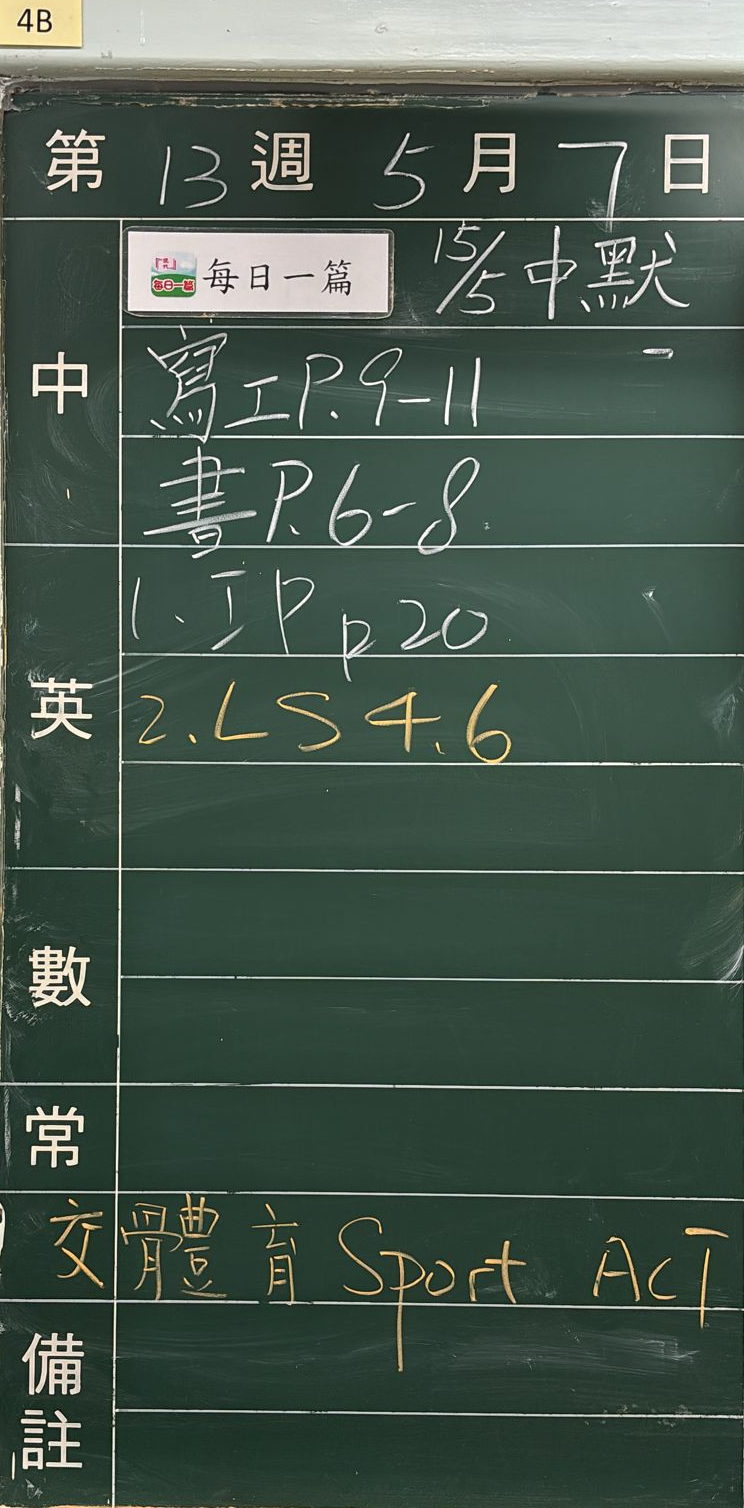 4B
第 13 週 5 月 7 日
每日一篇 每日一篇 15/5 中默
中 寫工P.9-11
書P.6-8
1. IP p20
英 2. LS 4.6
數
常
交 體育 Sport ACT
備註